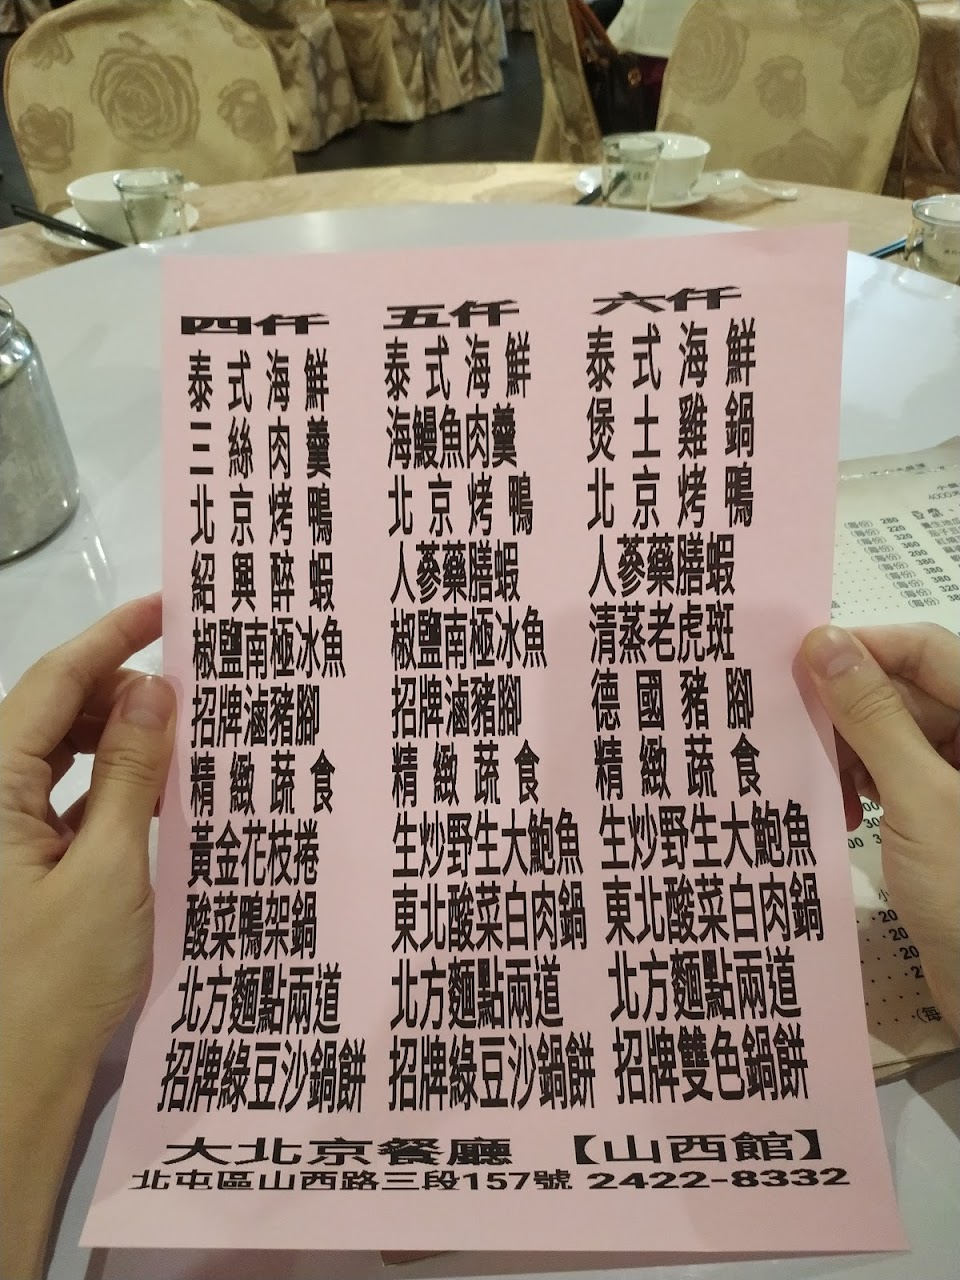 四仟
泰式海鮮
三絲肉羹
北京烤鴨
紹興醉蝦
椒鹽南極冰魚
招牌滷豬腳
精緻蔬食
黃金花枝捲
酸菜鴨架鍋
北方麵點兩道
招牌綠豆沙鍋餅
五仟
泰式海鮮
海鰻魚肉羹
北京烤鴨
人蔘藥膳蝦
椒鹽南極冰魚
招牌滷豬腳
精緻蔬食
生炒野生大鮑魚
東北酸菜白肉鍋
北方麵點兩道
招牌綠豆沙鍋餅
六仟
泰式海鮮
煲土雞鍋
北京烤鴨
人蔘藥膳蝦
清蒸老虎斑
德國豬腳
精緻蔬食
生炒野生大鮑魚
東北酸菜白肉鍋
北方麵點兩道
招牌雙色鍋餅
大北京餐廳 【山西館】
北屯區山西路三段157號 2422-8332
(每份) 280
(每份) 220
(每份) 320
(每份) 360
(每份) 200
(每份) 380
(每份) 320
(每份) 380